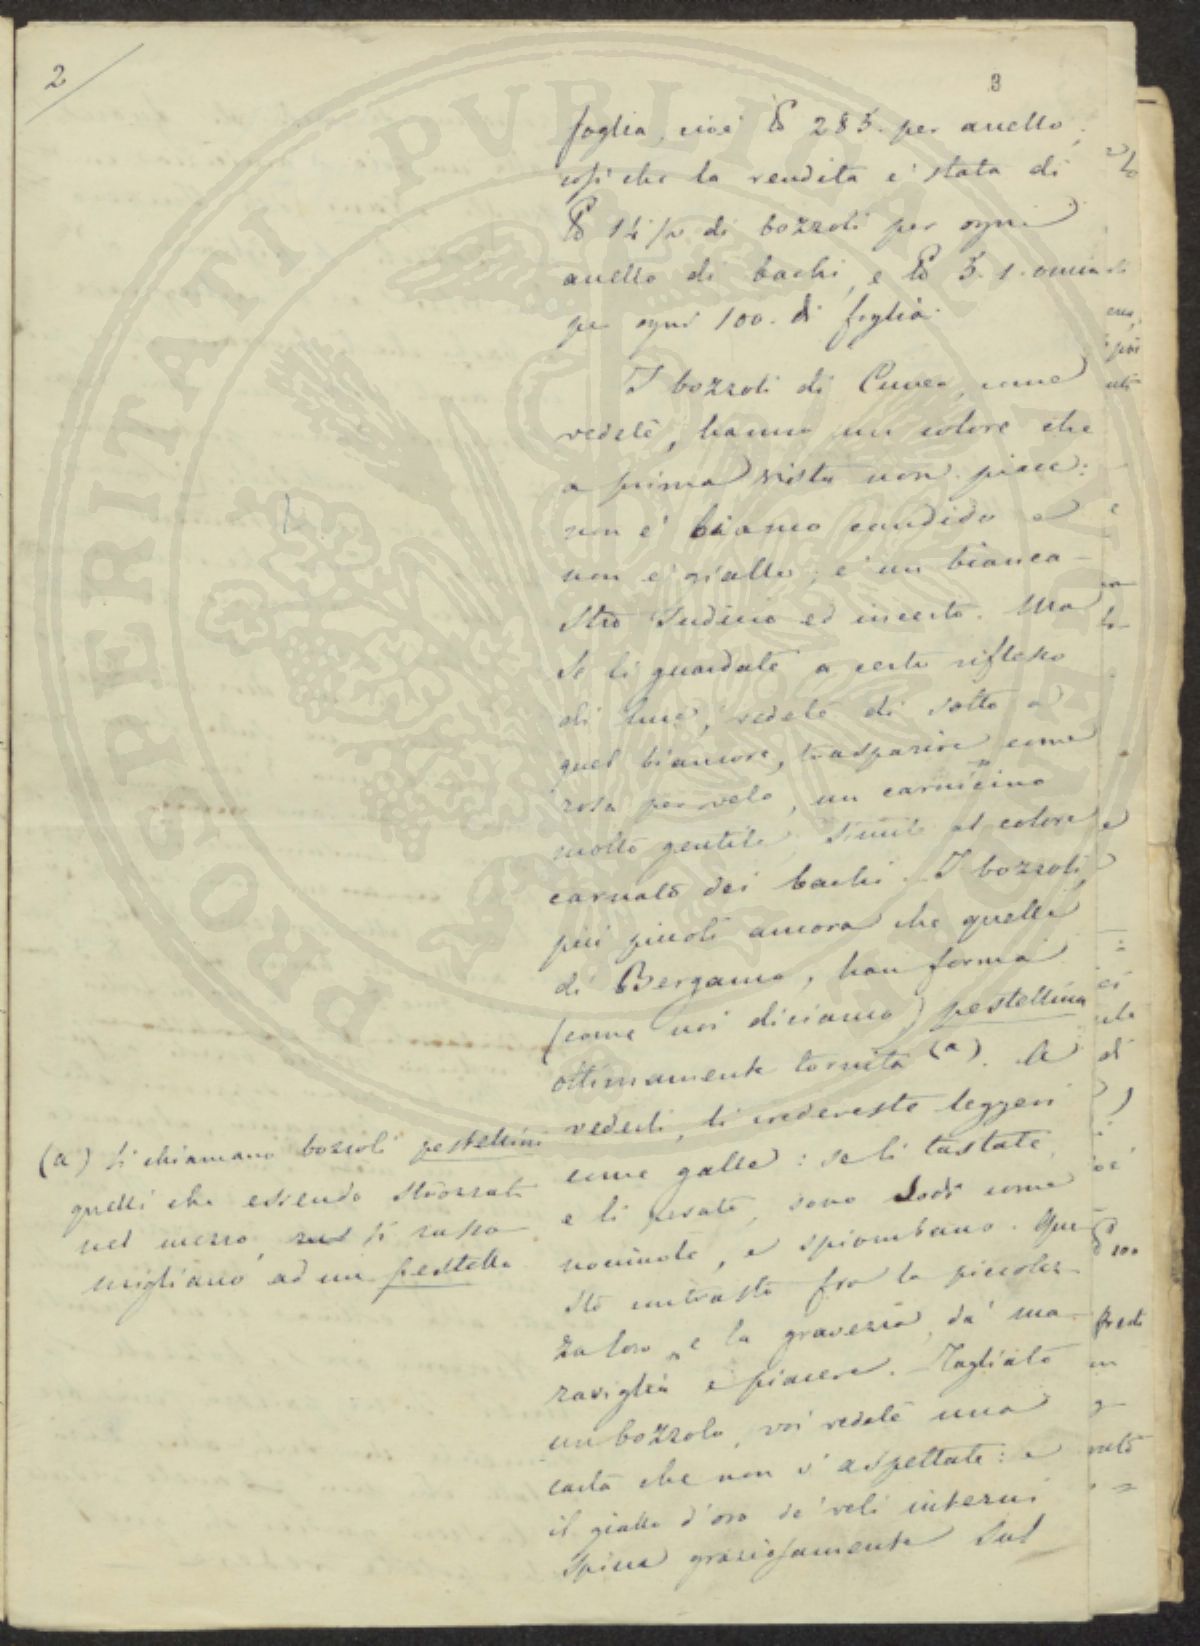 2
3
foglia, cioè ℔ 285. per anello,
così che la rendita è stata di
℔ 14 1/2 di bozzoli per ogni
anello di bachi, e ℔ 5. 1. oncia
per ogni 100. di foglia.
I bozzoli di Cuneo, come
vedete, hanno un colore che
a prima vista non piace:
non è bianco candido e
non è giallo; è un bianca-
stro sudicio ed incerto. Ma
se li guardate a certo riflesso
di luce, vedete di sotto a
quel biancore, trasparire come
rosa per velo, un carnicino
molto gentile, simile al colore
carnato dei bachi. I bozzoli,
più piccoli ancora che quelli
di Bergamo, han forma
(come noi diciamo) pestellina
ottimamente tornita (a). A
vederli, li credereste leggeri
come galle: se li tastate,
e li pesate, sono sodi come
nocciuole, e spiombano. Que-
sto contrasto fra la piccolez-
za loro e la gravezza, dà ma-
raviglia e piacere. Tagliato
un bozzolo, voi vedete una
carta che non v'aspettate: e
il giallo d'oro de' veli interni
spicca graziosamente sul
(a) Si chiamano bozzoli pestellini
quelli che essendo strozzati
nel mezzo, si rasso-
migliano ad un pestello